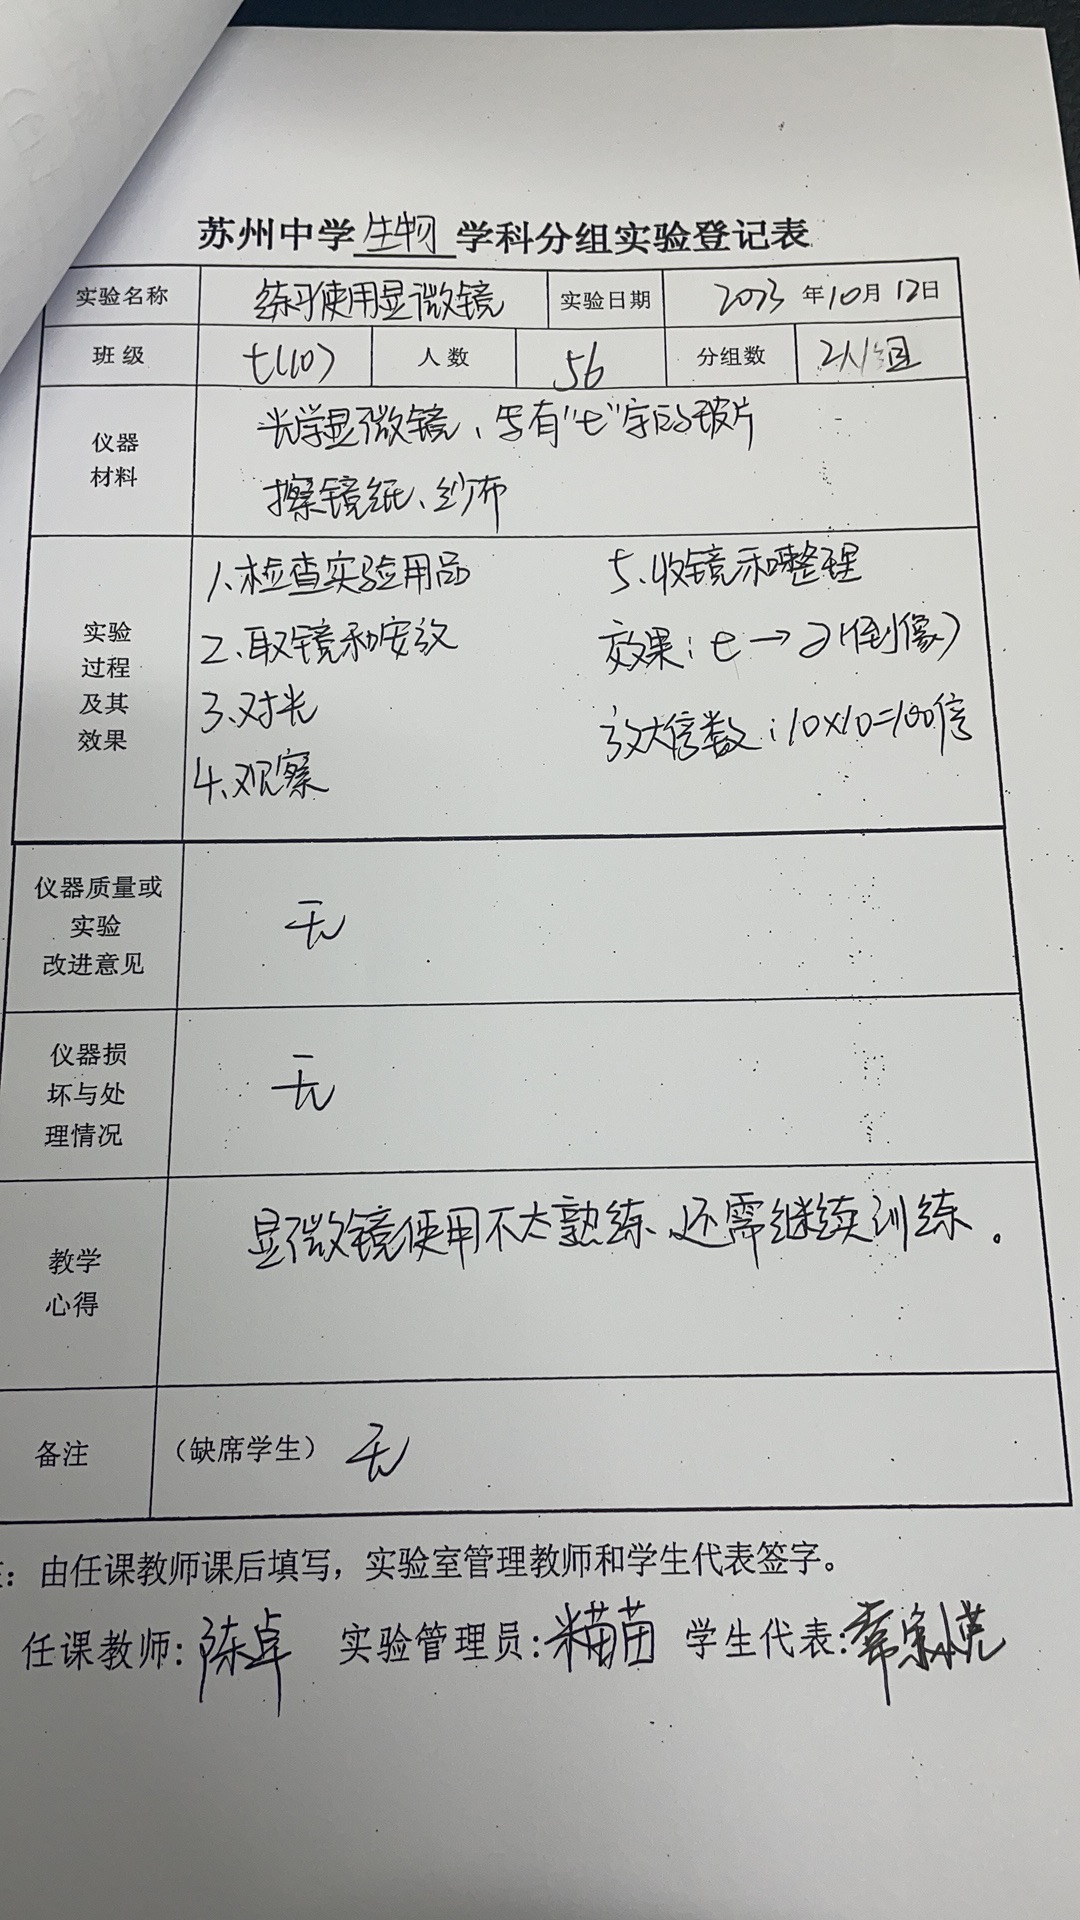 苏州中学生物学科分组实验登记表
实验名称 练习使用显微镜 实验日期 2023年10月12日
班级 七(10) 人数 56 分组数 2人1组
仪器材料
光学显微镜、写有"七"字的玻片
擦镜纸、纱布
实验过程及其效果
1、检查实验用品
2、取镜和安放
3、对光
4、观察
5、收镜和整理
效果：七→(倒像)
放大倍数：10×10=100倍
仪器质量或实验改进意见 无
仪器损坏与处理情况 无
教学心得 显微镜使用不太熟练、还需继续训练。
备注 （缺席学生） 无
：由任课教师课后填写，实验室管理教师和学生代表签字。
任课教师：陈卓 实验管理员： 学生代表：